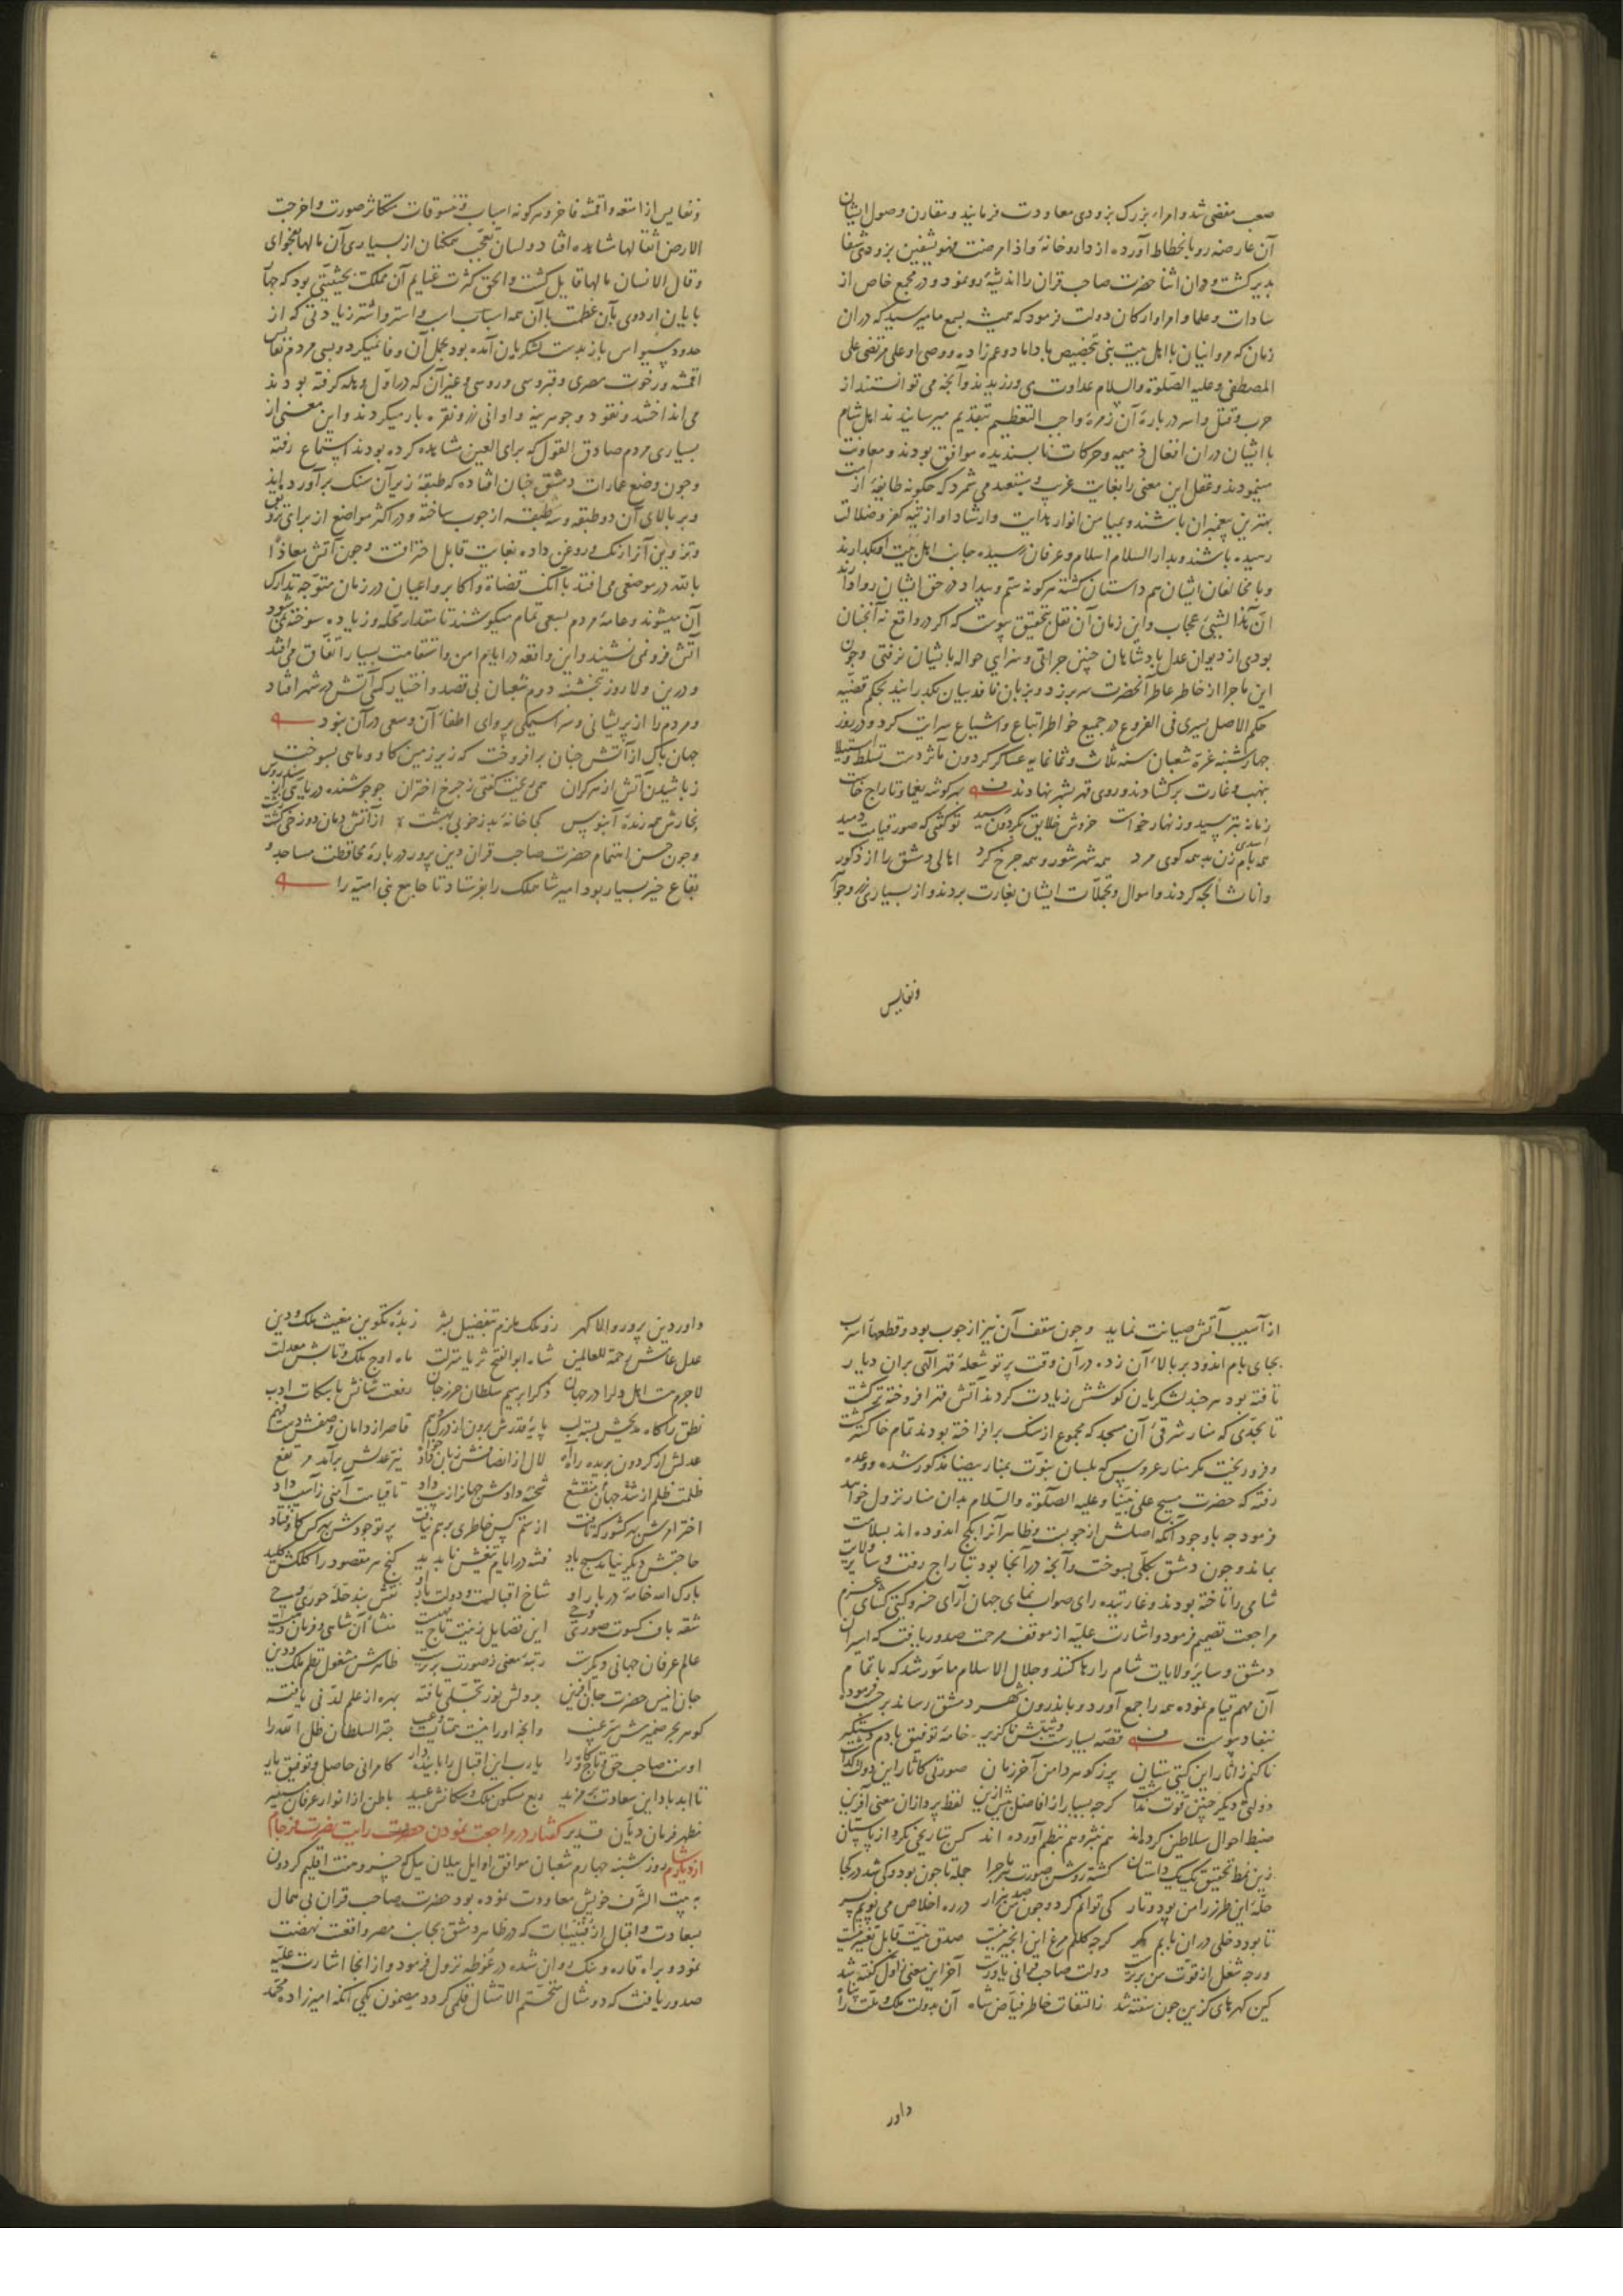 صعب مفضی شد و امراء بزرک بزودی معاودت فرمایند و مقارن وصول ایشان
آن عارضه رو بانحطاط آورد و از داروخانهٔ واذا مرضت فهو یشفین بزودی شفا
بدیر کشت و دران اثنا حضرت صاحب قران را اندیشهٔ رو نمود و در مجمع خاص از
سادات و علما و امرا و ارکان دولت فرمود که همیشه بسمع ما میرسید که دران
زمان که مروانیان با اهل بیت نبی بتخصیص با داماد و عم زاده و وصی او علی مرتضی علی
المصطفی و علیه الصلوة والسلام عداوت می ورزیدند و آنچه می توانستند از
حرب و قتل و اسر دربارهٔ آن زمرهٔ واجب التعظیم بتقدیم میرسانیدند اهل شام
با ایشان دران افعال ذمیمه و حرکات ناپسندیده موافق بودند و معاونت
مینمودند و عقل این معنی را بغایت غریب و مستبعد می شمرد که چکونه طایفهٔ از امت
بهترین پیغمبران باشند و بمیامن انوار هدایت و ارشاد او از تیه کفر و ضلالت
رسیده باشند و بدار السلام اسلام و عرفان رسیده جانب اهل بیت او بکذارند
و با مخالفان ایشان هم داستان کشته هرکونه ستم و بیداد در حق ایشان روا دارند
ان هذا لشیء عجاب و این زمان آن نقل بتحقیق پیوست که اکر در واقع نه آنچنان
بودی از دیوان عدل پادشاهان چنین جرائی و سزایی حواله بایشان نرفتی و چون
این ماجرا از خاطر عاطر آنحضرت سر برزد و بزبان نافذ بیان بکذرانید بحکم قضیه
حکم الاصل یسری فی الفروع در جمیع خواطر اتباع و اشیاع سرایت کرد و در روز
چهارشنبه غرهٔ شعبان سنه ثلاث و ثمانمایه عساکر کردون مآثر دست تسلط و استیلا
بنهب و غارت برکشادند و روی قهر بشهر نهادند بهر کوشه یغما و تاراج خاست
زمانه بترسید و زنهار خواست خروش خلایق بکردون رسید تو کفتی که صور قیامت دمید
همه بام زن بد همه کوی مرد همه شهر شور و همه چرخ کرد اهالی دمشق را از ذکور
و اناث برده کردند و اموال و تجملات ایشان بغارت بردند و از بسیاری زر و جواهر
ونفایس
ونفایس از امتعه و اقمشه فاخر و هرکونه اسباب و تنسوقات متکاثر صورت و اخرجت
الارض اثقالها مشاهده افتاد و لسان تعجب همکنان از بسیاری آن مالها بفحوای
وقال الانسان مالها قایل کشت و الحق کثرت غنایم آن مملکت بحیثیتی بود که چهار
پایان اردوی بآن عظمت با آن همه اسباب اسب و استر و اشتر زیادتی که از
حدود سیواس باز بدست لشکریان آمده بود بحمل آن وفا نمیکرد و بسی مردم نفایس
اقمشه و رخوت مصری و قبروسی و روسی و غیر آن که در اول وهله کرفته بودند
می انداختند و نقود و جوهرینه و اوانی زر و نقره بار میکردند و این معنی از
بسیاری مردم صادق القول که برای العین مشاهده کرده بودند استماع رفته
و چون وضع عمارات دمشق چنان افتاده که طبقهٔ زیر آن سنک برآورده اند
و بر بالای آن دو طبقه و سه طبقه از چوب ساخته و در اکثر مواضع از برای رونق
و تزوین آنرا رنک و روغن داده بغایت قابل احتراقست و چون آتش معاذا
بالله در موضعی می افتد با آنک قضاة و اکابر و اعیان در زمان متوجه تدارک
آن میشوند و عامهٔ مردم بسعی تمام میکوشند تا مقدار محله و زیاده سوخته نمی شود
آتش فرو نمی نشیند و این واقعه در ایام امن و استقامت بسیار اتفاق می افتد
و درین ولا روز پنجشنبه دوم شعبان بی قصد و اختیار کسی آتش در شهر افتاد
و مردم را از پریشانی و سراسیمکی پروای اطفاء آن و سعی در آن نبود
جهان پاک از آتش چنان برافروخت که زیر زمین کاو و ماهی بسوخت
ز باشیدن آتش از هر کران همی ریخت کفتی ز چرخ اختران چو جوشنده دریایی از سندروس
بخارش همه رنده آبنوس کجا خانهٔ بد ز خوبی بهشت از آتش دمان دوزخی کشت زشت
و چون حسن اهتمام حضرت صاحب قران دین پرور دربارهٔ محافظت مساجد و
بقاع خیر بسیار بود امیر شاهملک را بفرستاد تا جامع بنی امیه را
از آسیب آتش صیانت نماید و چون سقف آن نیز از چوب بود و قطعها اسرب
بجای بام اندود بر بالاء آن زده در آن وقت پرتو شعلهٔ قهر آلهی بران دیار
تافته بود هر چند لشکریان کوشش زیادت کردند آتش قهر افروخته تر کشت
تا بحدی که منار شرقیٔ آن مسجد که مجموع از سنک برافراخته بودند تمام خاکستر کشت
و فرو ریخت مکر منار عروس که بلسان نبوت بمنار بیضا مذکور شده و وعده
رفته که حضرت مسیح علی نبینا و علیه الصلوة والسلام بدان منار نزول خواهد
فرمود چه با وجود آنکه اصلش از چوبست و ظاهر آنرا بکچ اندوده اند بسلامت
بماند و چون دمشق بکلی بسوخت و آنچه در آنجا بود بتاراج رفت و سایر ولایات
شامی را تاخته بودند و غارتیده رای صواب نمای جهان آرای خسرو کیتی کشای عزم
مراجعت تصمیم فرمود و اشارت علیه از موقف مرحمت صدور یافت که اسیران
دمشق و سایر ولایات شام را رها کنند و جلال الاسلام مأمور شد که باتمام
آن مهم قیام نموده همه را جمع آورد و باندرون شهر دمشق رساند بر حسب فرموده
بنفاذ پیوست قصه بسیارست و ثبتش ناکزیر خامهٔ توفیق بادم دستکیر
تا کنم ز اثار این کیتی ستان پر ز کوهر دامن آخر زمان صورتی کاثار این دولت کذاشت
دولتی دیکر چنین قوت نداشت کرچه بسیار از افاضل پیش ازین لفظ پردازان معنی آفرین
ضبط احوال سلاطین کرده اند هم بنثر و هم بنظم آورده اند کس بتاریخی نکرد از باستان
زین نمط تحقیق یک یک داستان کشته روشن صورت هر ماجرا جمله تا چون بود و کی شد در کجا
حلهٔ این طرز را من پود و تار کی توانم کرد و چون من صد هزار در ره اخلاص می پویم بسر
تا بود دخلی دران بابم مکر کرچه کلکم مرغ این انجیر نیست صدق نیت قابل تغییر نیست
ورچه شغل از قوت من برترست دولت صاحب قرانی یاورست آخر این معنی ز اول کفته شد
کین کهرهای کزین چون سفته شد ز التفات خاطر فیاض شاه آن بدولت ملک و ملت را پناه
داور
داور دین پرور والا کهر زو ملک ملزم بتفضیل بشر زبدهٔ تکوین مغیث ملک و دین
عدل عامش رحمة للعالمین شاه ابوالفتح ثریا منزلت ماه اوج ملک و تابش معدلت
لاجرمت اهل دلرا در جهان ذکر ابرهیم سلطان حرز جان رفعت شانش باسکات ادب
نطق را کاه مدیحش بسته لب پایهٔ قدرش برون از درک و هم قاصر از دامان وصفش دست فهم
عدلش از کردون بریده راه لال از انصافش زبان نیر عدلش برآمد مرتفع
ظلمت ظلم از شد جهان منقشع شحنهٔ دادش جهانرا از پی داد تا قیامت آمنی ز آسیب داد
اختر امرش بهر کشور که تافت از ستم کس خاطری برهم نیافت پرتو جودش بهر کس کاوفتاد
حاجتش دیکر نیامد هیچ یاد فتنه در ایام تیغش ناپدید کنج هر مقصود را کلکش کلید
بارک الله خامهٔ دربار او شاخ اقبالست و دولت بار او نقش بند حلهٔ حوری
شقه باف کسوت صوری این فضایل زینت تاج منشأ آن شاهی و فرمان دهیست
عالم عرفان جهانی دیکرست رتبهٔ معنی ز صورت برترست ظاهرش مشغول نظم ملک و دین
جان انیس حضرت جان آفرین بر دلش نور تجلی تافته بهره از علم لدنی یافته
کوهر بحر ضمیرش سر غیب و آنچه او را نیست همتا نیست و عیب حبذا السلطان ظل الله را
اوست صاحب حق و تاج و کاه را یارب این اقبال را پاینده دار کامرانی حاصل و توفیق یار
تا ابد باد این سعادت بر مزید ربع مسکون ملک و سکانش عبید باطن از انوار عرفان مستنیر
مظهر فرمان دیان قدیر کفتار در مراجعت نمودن حضرت رایت نصرت فرجام
از دیار شام روز شنبه چهارم شعبان موافق اوایل ییلان ییل که خسرو هفت اقلیم کردون
به بیت الشرف خویش معاودت نموده بود حضرت صاحب قران بی همال
بسعادت و اقبال از قبیبات که در ظاهر دمشق بجانب مصر واقعست نهضت
نمود و براه قاره و نبک روان شده در غوطه نزول فرمود و از انجا اشارت علیه
صدور یافت که دو مثال متحتم الامتثال قلمی کردد مضمون یکی آنکه امیرزاده محمد